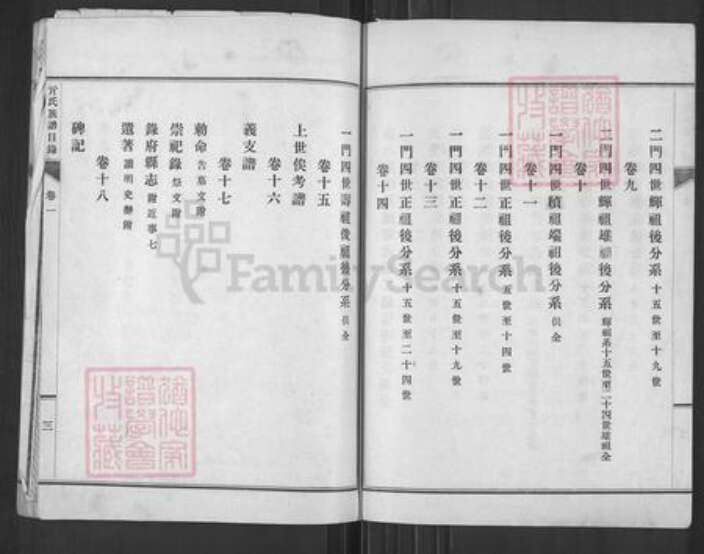 二門四世輝祖後分系 十五世至十九世
卷九
二門四世輝祖雄祖後分系 輝祖系十五世至二十四世雄祖全
卷十
一門四世楨祖端祖後分系 俱全
卷十一
一門四世正祖後分系 五世至十四世
卷十二
一門四世正祖後分系 十五世至十九世
卷十三
一門四世正祖後分系 十五世至二十四世
卷十四
一門四世壽祖俊祖後分系 俱全
卷十五
上世俟考譜
卷十六
義支譜
卷十七
勅命 告墓文附
崇祀錄 祭文附
錄府縣志 附近事七
遺著 讀明史雜附
卷十八
碑記
氏族譜目錄
卷一
三
FamilySearch